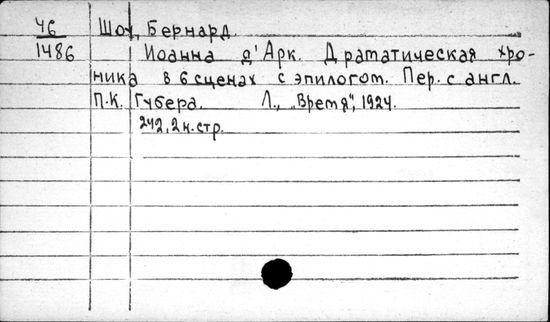 Ч6
1486
Шоу, Бернард.
Иоанна д'Арк. Драматическая хро-
ника в 6 сценах с эпилогом. Пер. с англ.
П.К. Губера. Л., „Время", 1924.
242, 2 н. стр.